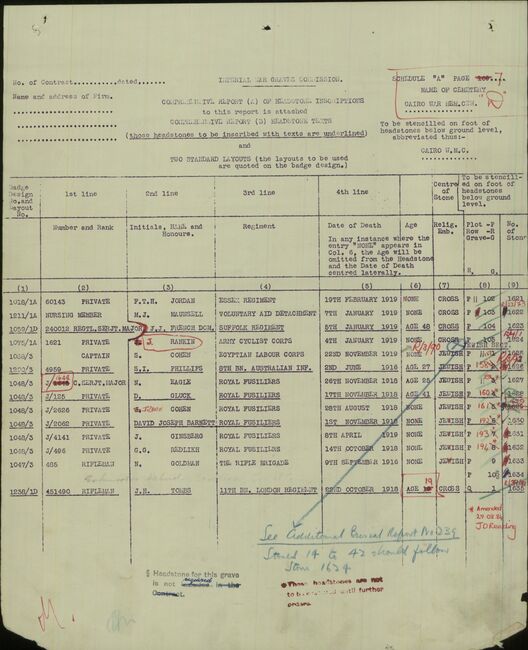 No. of Contract............dated.......
Name and address of Firm.
IMPERIAL WAR GRAVES COMMISSION.
COMPREHENSIVE REPORT (A) OF HEADSTONE INSCRIPTIONS
to this report is attached
COMPREHENSIVE REPORT (B) HEADSTONE TEXTS
(those headstones to be inscribed with texts are underlined)
and
TWO STANDARD LAYOUTS (the layouts to be used
are quoted on the badge design.)
SCHEDULE "A" PAGE 7.
NAME OF CEMETERY
CAIRO WAR MEM. CEM. "D"
To be stencilled on foot of
headstones below ground level,
abbreviated thus:-
CAIRO W.M.C.
Badge Design No. and Layout No. 1st line 2nd line 3rd line 4th line Centre of Stone To be stencilled on foot of headstones below ground level.
Number and Rank Initials, NAME and Honours. Regiment Date of Death In any instance where the entry "NONE" appears in Col. 6, the Age will be omitted from the Headstone and the Date of Death centred laterally. Age Relig. Emb. Plot Row Grave No. of Stone
(1) (2) (3) (4) (5) (6) (7) (8) (9)
1018/1A 60143 PRIVATE F.T.H. JORDAN ESSEX REGIMENT 19TH FEBRUARY 1919 NONE CROSS 1621
1211/1A NURSING MEMBER M.J. MAUNSELL VOLUNTARY AID DETACHMENT 7TH JANUARY 1919 NONE CROSS 1622
1059/1D 240012 REGTL.SERJT.MAJOR J.J. FRENCH DCM. SUFFOLK REGIMENT 8TH JANUARY 1919 AGE 48 CROSS P 104 1623
1075/1A 1621 PRIVATE J. RANKIN ARMY CYCLIST CORPS 4TH JANUARY 1919 NONE CROSS 1624
1038/3A CAPTAIN S. COHEN EGYPTIAN LABOUR CORPS 22ND NOVEMBER 1919 NONE JEWISH
1290/3 4959 PRIVATE S.I. PHILLIPS 8TH BN. AUSTRALIAN INF. 2ND JUNE 1916 AGE 27 JEWISH
1048/3 C.SERJT.MAJOR N. EAGLE ROYAL FUSILIERS 26TH NOVEMBER 1918 AGE 28 JEWISH
1048/3 J/125 PRIVATE D. GLUCK ROYAL FUSILIERS 17TH NOVEMBER 1918 AGE 41 JEWISH
1048/3 J/2626 PRIVATE COHEN ROYAL FUSILIERS 28TH AUGUST 1918 NONE JEWISH
1048/3 J/2062 PRIVATE DAVID JOSEPH BARNETT ROYAL FUSILIERS 1ST NOVEMBER 1918 NONE JEWISH 1630
1048/3 J/4141 PRIVATE J. GINSBERG ROYAL FUSILIERS 8TH APRIL 1919 NONE JEWISH 1631
1048/3 J/496 PRIVATE G.G. REDLIER ROYAL FUSILIERS 14TH OCTOBER 1918 NONE JEWISH 1632
1047/3 485 RIFLEMAN N. GOLDMAN THE RIFLE BRIGADE 9TH SEPTEMBER 1916 NONE JEWISH 1633
1634
1238/1D 451490 RIFLEMAN J.H. TOMBS 11TH BN. LONDON REGIMENT 22ND OCTOBER 1918 AGE 19 CROSS Q 1 1635
* Amended
J D Reading
See Additional Burial Report No 239
Stones 14 to 42 should follow
Stone 1634
§ Headstone for this grave
is not required in the
Contract.
* These headstones are not
to be until further
orders.